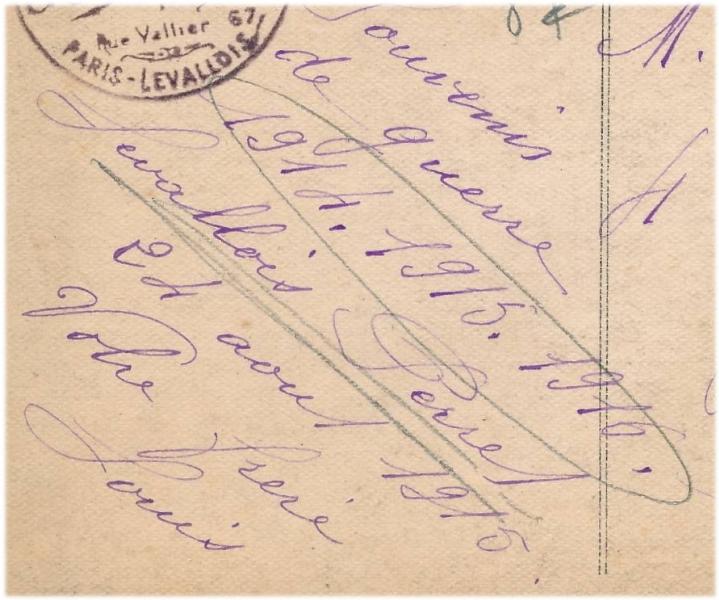 Rue Vallier 67
PARIS-LEVALLOIS
Souvenir
de guerre
1914. 1915. 1916.
Levallois Perret
24 aout 1915.
Votre frère
Louis
M.